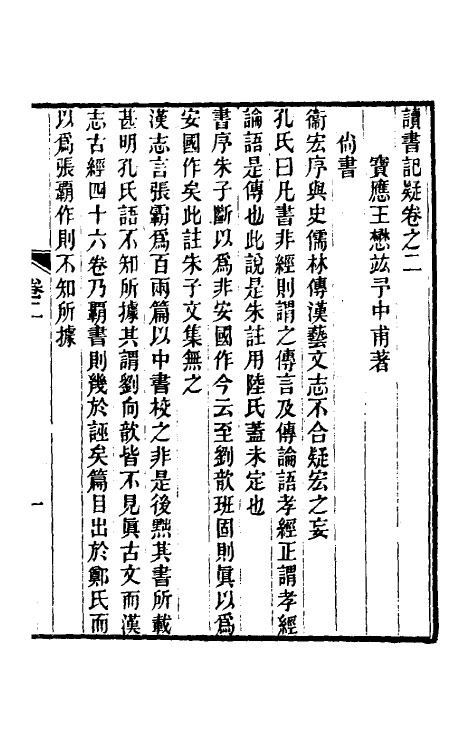 讀書記疑卷之二
寶應王懋竑予中甫著
尚書
衞宏序與史儒林傳漢藝文志不合疑宏之妄
孔氏曰凡書非經則謂之傳言及傳論語孝經正謂孝經
論語是傳也此說是朱註用陸氏蓋未定也
書序朱子斷以爲非安國作今云至劉歆班固則眞以爲
安國作矣此註朱子文集無之
漢志言張霸爲百兩篇以中書校之非是後黜其書所載
甚明孔氏語不知所據其謂劉向歆皆不見眞古文而漢
志古經四十六卷乃霸書則幾於誣矣篇目出於鄭氏而
以爲張霸作則不知所據
卷二
一